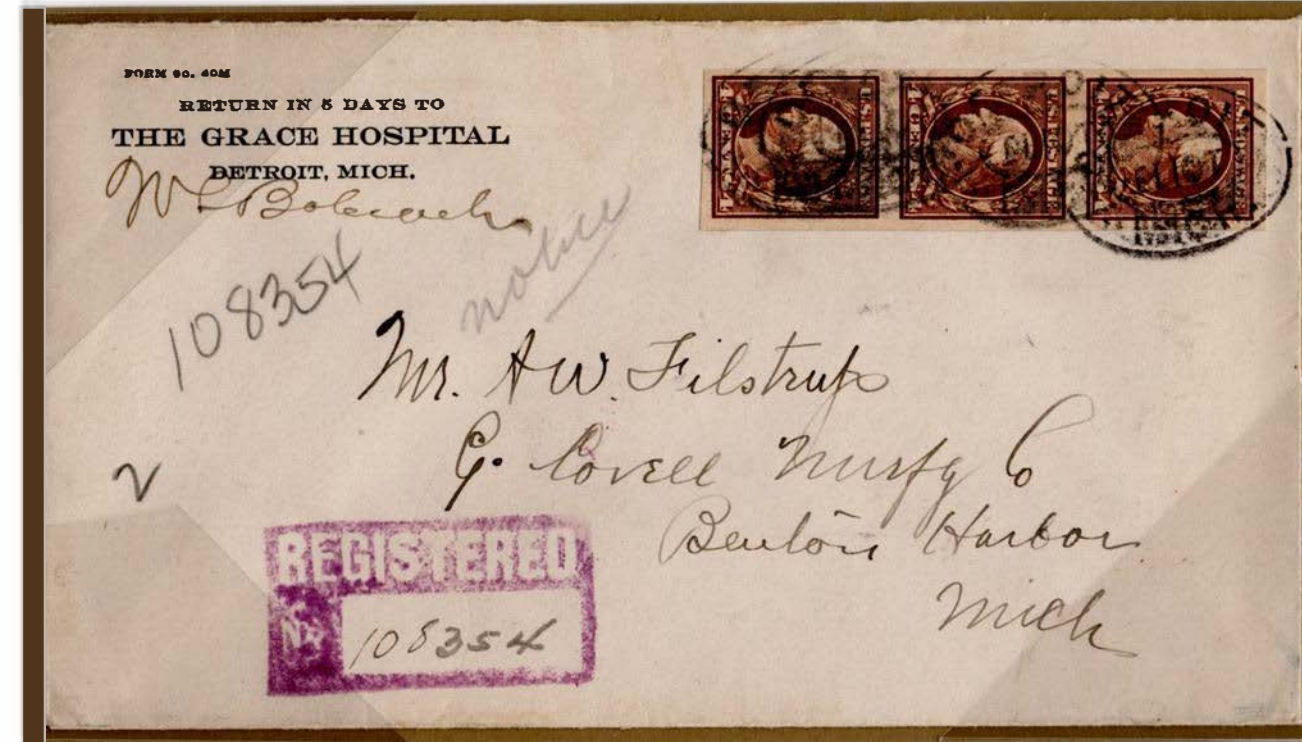 FORM 90. 40M
RETURN IN 5 DAYS TO
THE GRACE HOSPITAL
DETROIT, MICH.
108354
notice
Mr. A W. Filstrup
G. Covell Mnfg Co
Benton Harbor
Mich
2
REGISTERED
No
108354